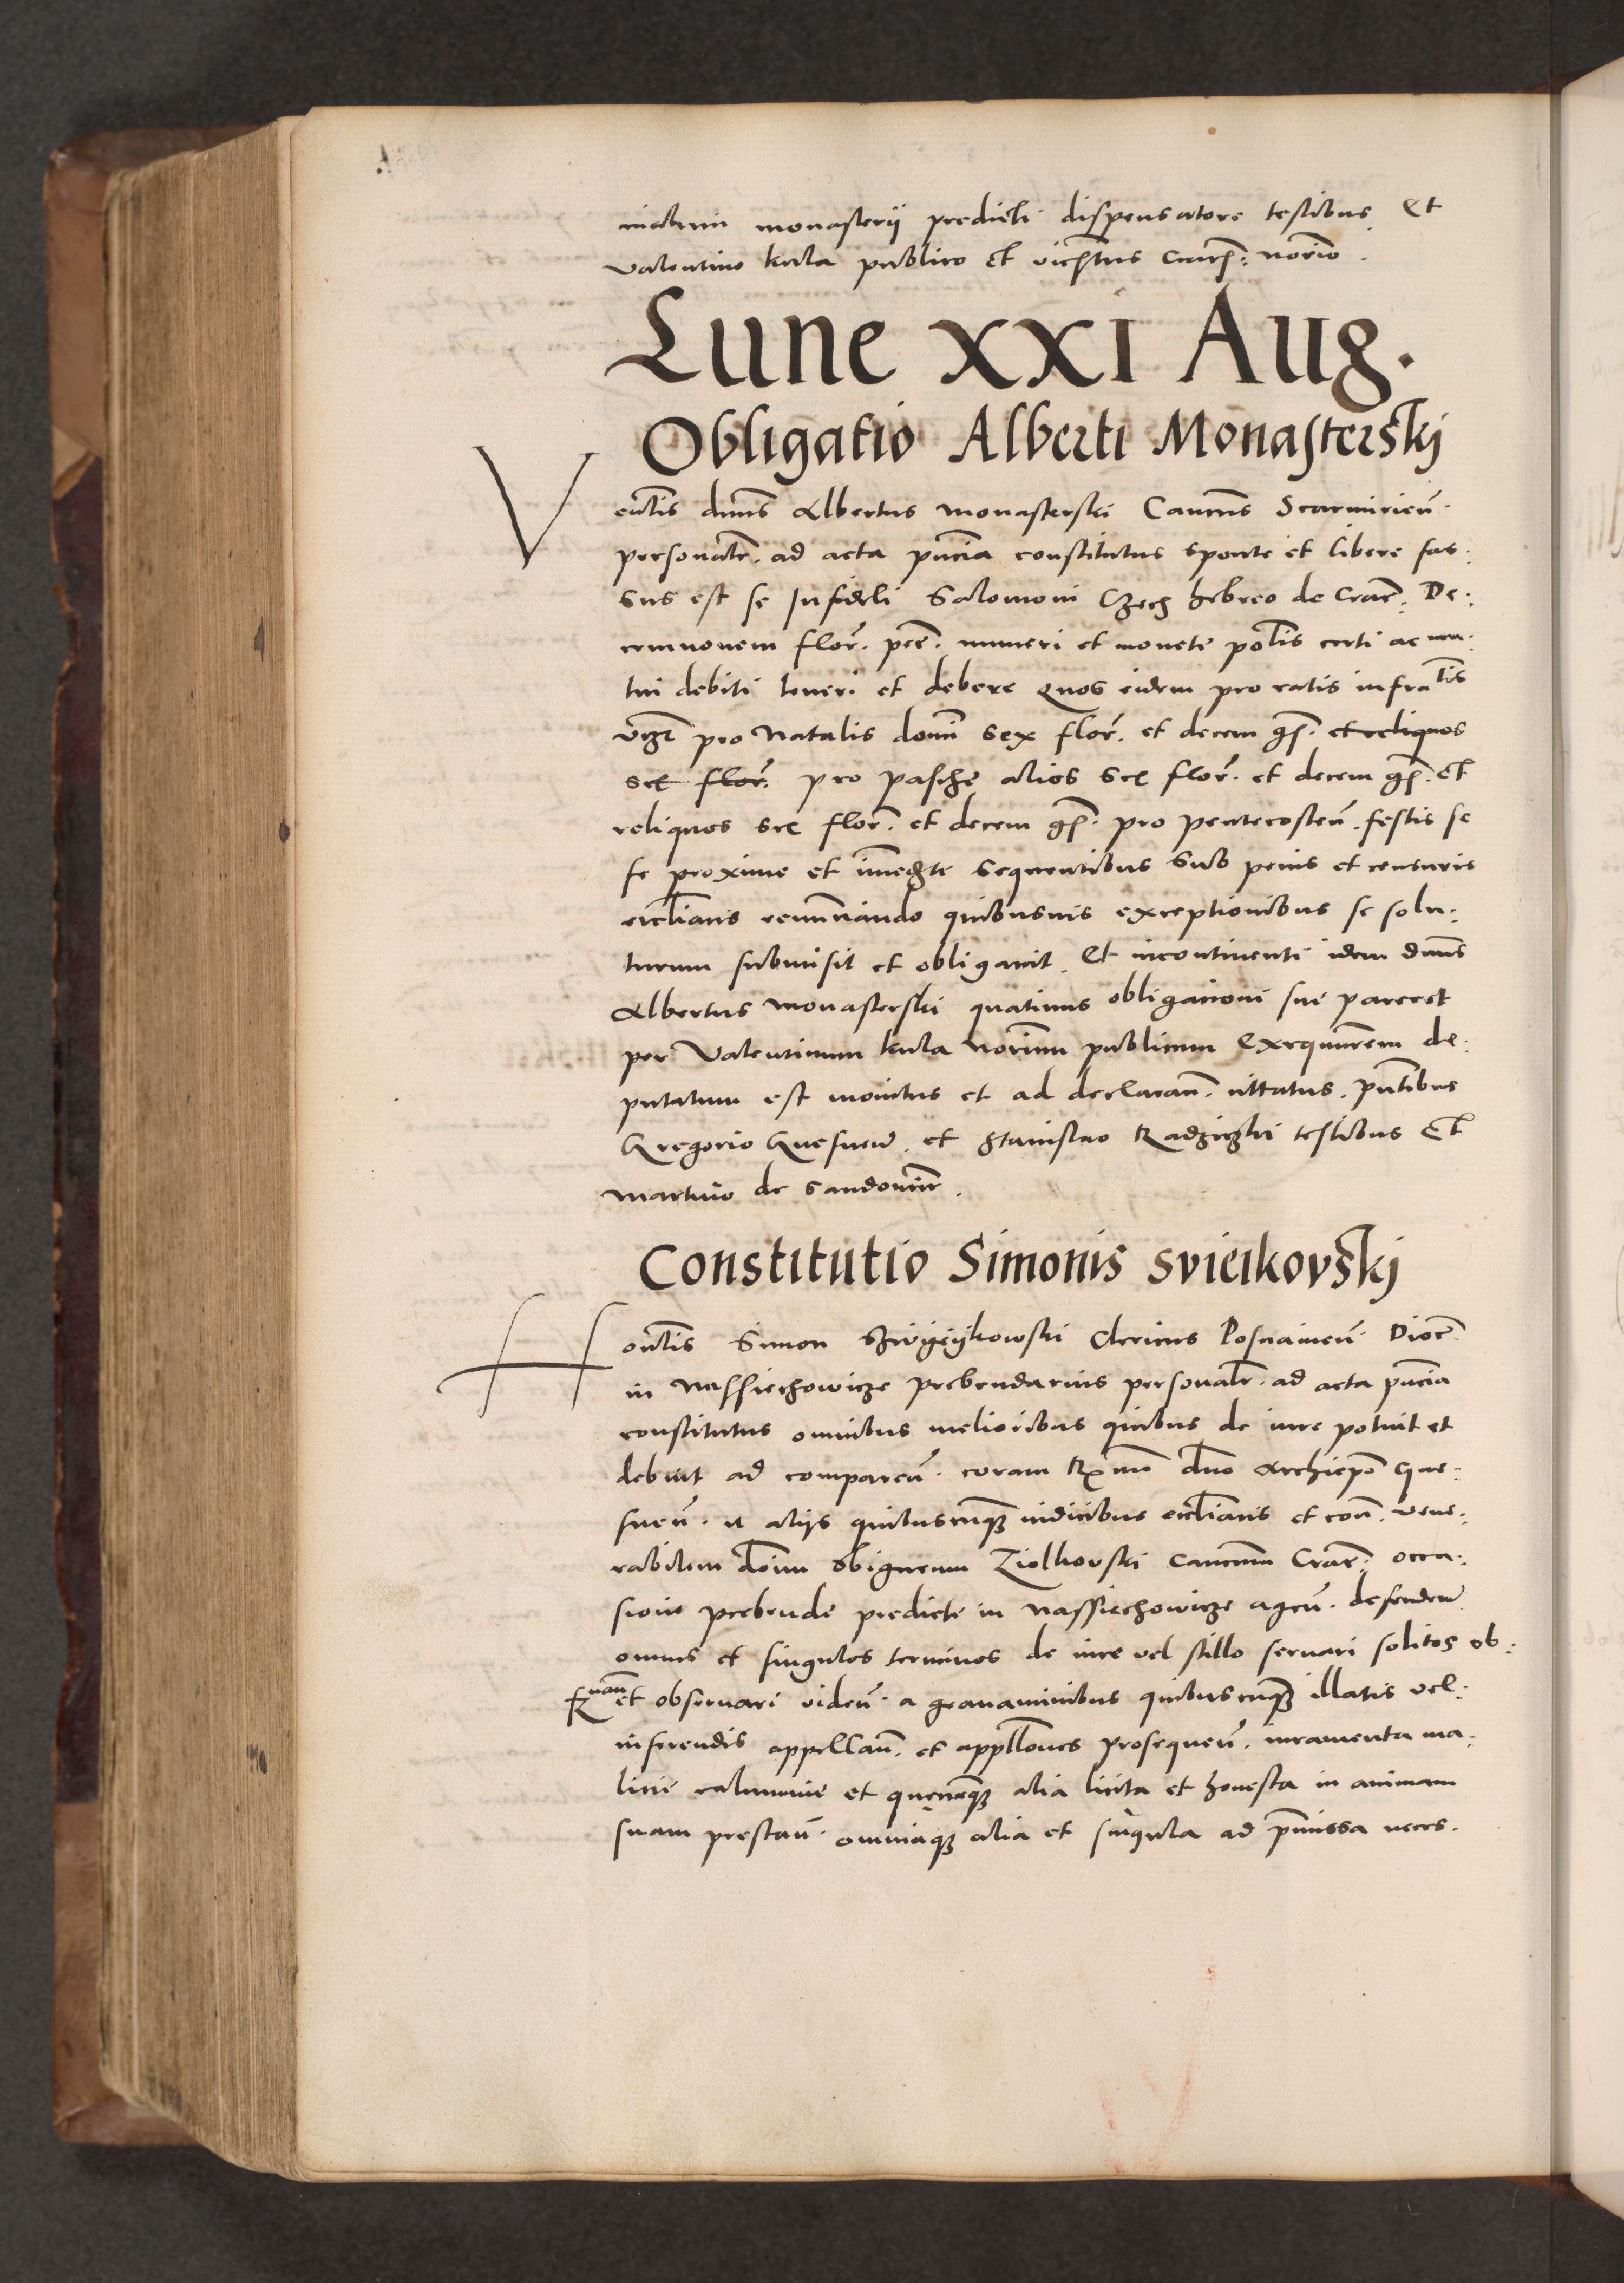 monasterij predicti dispensatore testibus Et
Valentino kula publico et Cur: norio.
Lune XXI Aug.
Obligatio Alberti Monasterskj
Venlis dnus Albertus monasterski Cancus Scarmirien.
personalr. ad acta pncia constitutus sponte et libere fas:
sus est se Infideli Salomoni Czech hebreo de Crac: De:
cemnovem flor. pce. numeri et monete polis certi ac mu:
tui debiti teneri et debere Quos eidem pro ratis infratis
vizt pro Natalis domi sex flor. et decem gs. et reliquos
sex flor. pro pasche alios sex flor. et decem gs. et
reliquos sex flor. et decem gs. pro pentecosten. festis se
se proxime et immedte sequentibus sub penis et censuris
ecclianis renunnando quibusuis exceptionibus se solu:
turum submisit et obligauit. Et incontinenti idem dnus
Albertus monasterski quatinus obligationi sue pareret
per Valentinum kula norium publicum Exequurem de:
putatum est monitus et ad declaran. cittatus. pntibus
Gregorio et Stanislao Radzieski testibus Et
martino de Sandomir.
Constitutio Simonis svieikovskj
Honlis Simon Clericus Posnanien. Dioc.
in Nassiechowicze prebendarius personalr. ad acta pncia
constitutus omnibus melioribus quibus de iure potuit et
debuit ad comparen. coram Rxmo dno Archiepo Gne:
snen. ac alijs quibuscunqz iudicibus ecclianis et con. vene:
rabilem doim Sbigneum Ziolkovski cancum Crac: occa:
sione prebende predicte in Nassiechowicze agen. defenden
omnes et singulos terminos de iure vel stillo seruari solitos ob:
seruan et obseruari viden. a grauaminibus quibuscunqz illatis vel:
inferendis appellan. et appllones prosequen. iuramenta ma:
licie calumnie et quecunqz alia licita et honesta in animam
suam prestan. omniaqz alia et singula ad pmissa neces.